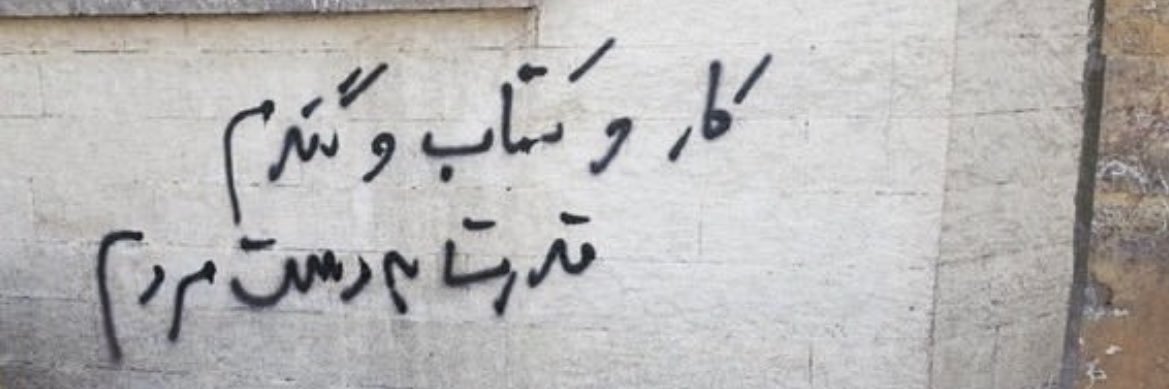 کار و کتاب و گندم
قدرت به دست مردم